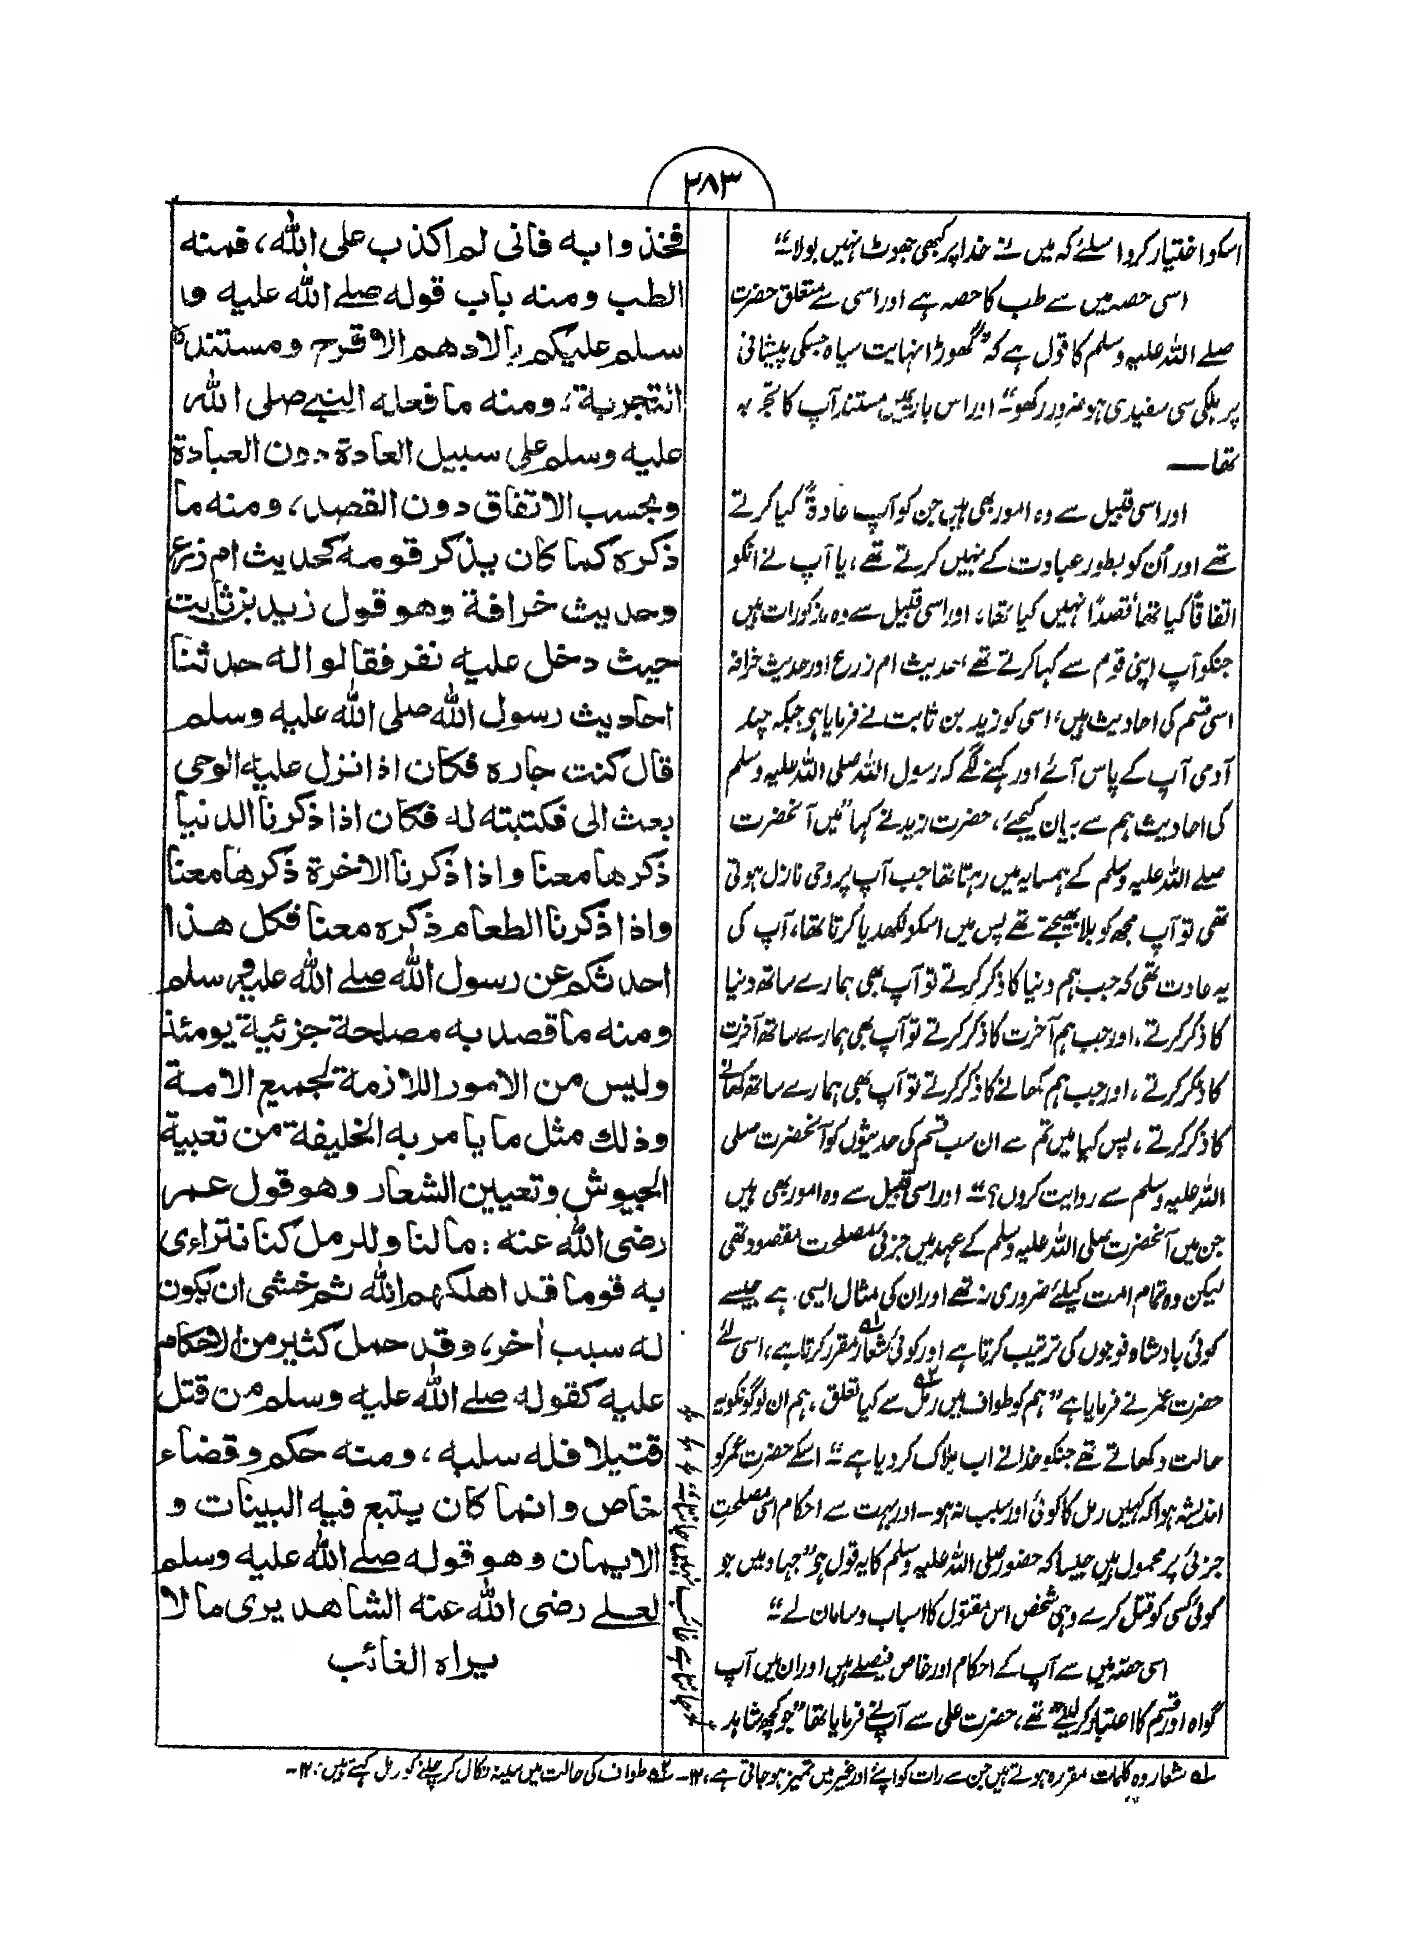 ۳۸۳
اسکو اختیار کرو اسلئے کہ میں نے خدا پر کبھی جھوٹ نہیں بولا۔“
اسی حصہ میں سے طب کا حصہ ہے اور اسی سے متعلق حضرت
صلے اللہ علیہ وسلم کا قول ہے کہ ”گھوڑا نہایت سیاہ جسکی پیشانی
پر ہلکی سی سفیدی ہو ضرور رکھو“ اور اس بار میں مستند آپ کا تجربہ
تھا ــــ
اور اسی قبیل سے وہ امور بھی ہیں جن کو آپ عادۃً کیا کرتے
تھے اور اُن کو بطور عبادت کے نہیں کرتے تھے، یا آپ نے انکو
اتفاقاً کیا تھا قصداً نہیں کیا تھا، اور اسی قبیل سے وہ مذکورات ہیں
جنکو آپ اپنی قوم سے کہا کرتے تھے، حدیث ام زرع اور حدیث خرافہ
اسی قسم کی احادیث ہیں، اسی کو زید بن ثابت نے فرمایا ہی جبکہ چند
آدمی آپ کے پاس آئے اور کہنے لگے کہ رسول اللہ صلی اللہ علیہ وسلم
کی احادیث ہم سے بیان کیجئے، حضرت زید نے کہا ”میں آنحضرت
صلے اللہ علیہ وسلم کے ہمسایہ میں رہتا تھا جب آپ پر وحی نازل ہوتی
تھی تو آپ مجھ کو بلا بھیجتے تھے پس میں اسکو لکھدیا کرتا تھا، آپ کی
یہ عادت تھی کہ جب ہم دنیا کا ذکر کرتے تو آپ بھی ہمارے ساتھ دنیا
کا ذکر کرتے، اور جب ہم آخرت کا ذکر کرتے تو آپ بھی ہمارے ساتھ آخرت
کا ذکر کرتے، اور جب ہم کھانے کا ذکر کرتے تو آپ بھی ہمارے ساتھ کھانے
کا ذکر کرتے، پس کیا میں تم سے ان سب قسم کی حدیثوں کو آنحضرت صلی
اللہ علیہ وسلم سے روایت کروں؟“ اور اسی قبیل سے وہ امور بھی ہیں
جن میں آنحضرت صلی اللہ علیہ وسلم کے عہد میں جزئی مصلحت مقصود تھی
لیکن وہ تمام امت کیلئے ضروری نہ تھے اور ان کی مثال ایسی ہے جیسے
کوئی بادشاہ فوجوں کی ترتیب کرتا ہے اور کوئی شعار ۱ مقرر کرتا ہے، اسی لئے
حضرت عمر نے فرمایا ہے ”ہم کو طواف میں رمل ۲ سے کیا تعلق، ہم ان لوگونکو یہ
حالت دکھاتے تھے جنکو خدا نے اب ہلاک کر دیا ہے“ اسکے حضرت عمر کو
اندیشہ ہوا کہ کہیں رمل کا کوئی اور سبب نہ ہو۔ اور بہت سے احکام اسی مصلحتِ
جزئی پر محمول ہیں جیسا کہ حضور صلی اللہ علیہ وسلم کا یہ قول ہو ”جہاد میں جو
کوئی کسی کو قتل کرے وہی شخص اس مقتول کا اسباب و سامان لے“
اسی حصہ میں سے آپ کے احکام اور خاص فیصلے ہیں اور ان میں آپ
گواہ اور قسم کا اعتبار کر لیتے تھے، حضرت علی سے آپ نے فرمایا تھا ”جو کچھ شاہد
جانتا ہے غائب نہیں جانتا“
فخذوا به فانی لم اکذب علی الله، فمنه
الطب ومنه باب قوله صلے الله علیه و
سلم علیکم بالادهم الاقرح ومستنده
التجربة، ومنه ما فعله النبے صلی الله
علیه وسلم علی سبیل العادة دون العبادة
وبحسب الاتفاق دون القصد، ومنه ما
ذکره کما کان یذکر قومه کحدیث ام زرع
وحدیث خرافة وهو قول زید بن ثابت
حیث دخل علیه نفر فقالوا له حدثنا
احادیث رسول الله صلی الله علیه وسلم
قال کنت جاره فکان اذا نزل علیه الوحی
بعث الی فکتبته له فکان اذا ذکرنا الدنیا
ذکرها معنا واذا ذکرنا الاخرة ذکرها معنا
واذا ذکرنا الطعام ذکره معنا فکل هذا
احدثکم عن رسول الله صلے الله علیه وسلم
ومنه ما قصد به مصلحة جزئیة یومئذ
ولیس من الامور اللازمة لجمیع الامة
وذلك مثل ما یامر به الخلیفة من تعبیة
الجیوش وتعیین الشعار وهو قول عمر
رضی الله عنه: ما لنا وللرمل کنا نتراءی
به قوما قد اهلکهم الله ثم خشی ان یکون
له سبب أخر، وقد حمل کثیر من الاحکام
علیه کقوله صلے الله علیه وسلم من قتل
قتیلا فله سلبه، ومنه حکم وقضاء
خاص وانما کان یتبع فیه البینات و
الایمان وهو قوله صلے الله علیه وسلم
لعلے رضی الله عنه الشاهد یری ما لا
یراه الغائب
۱ شعار وہ کلمات مقررہ ہوتے ہیں جن سے رات کو اپنے اور غیر میں تمیز ہو جاتی ہے، ۱۲۔ ۲ طواف کی حالت میں سینہ نکال کر چلنے کو رمل کہتے ہیں: ۱۲۔